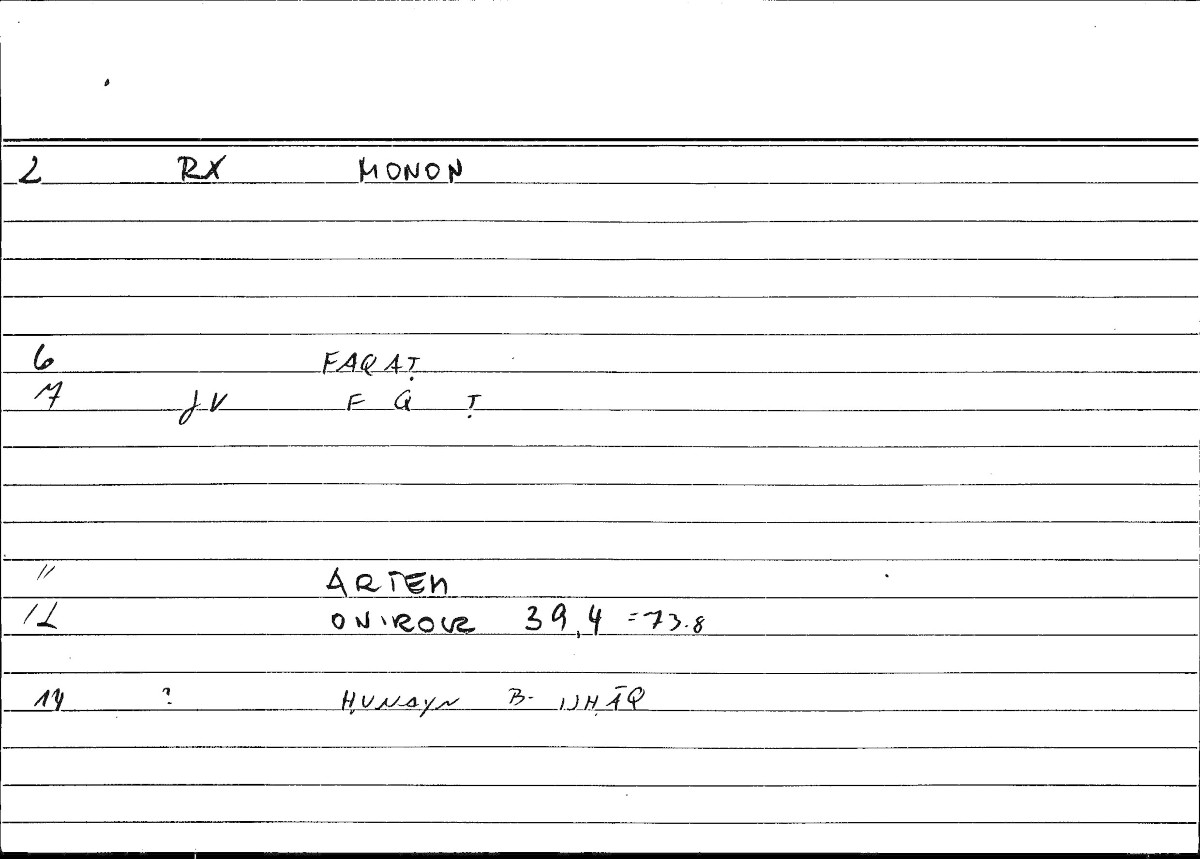 2 RX MONON
6 FAQAṬ
7 JV F Q Ṭ
11 ARTEM
12 ONIROCR 39,4 = 73.8
14 ? ḤUNAYN B. ISḤĀQ